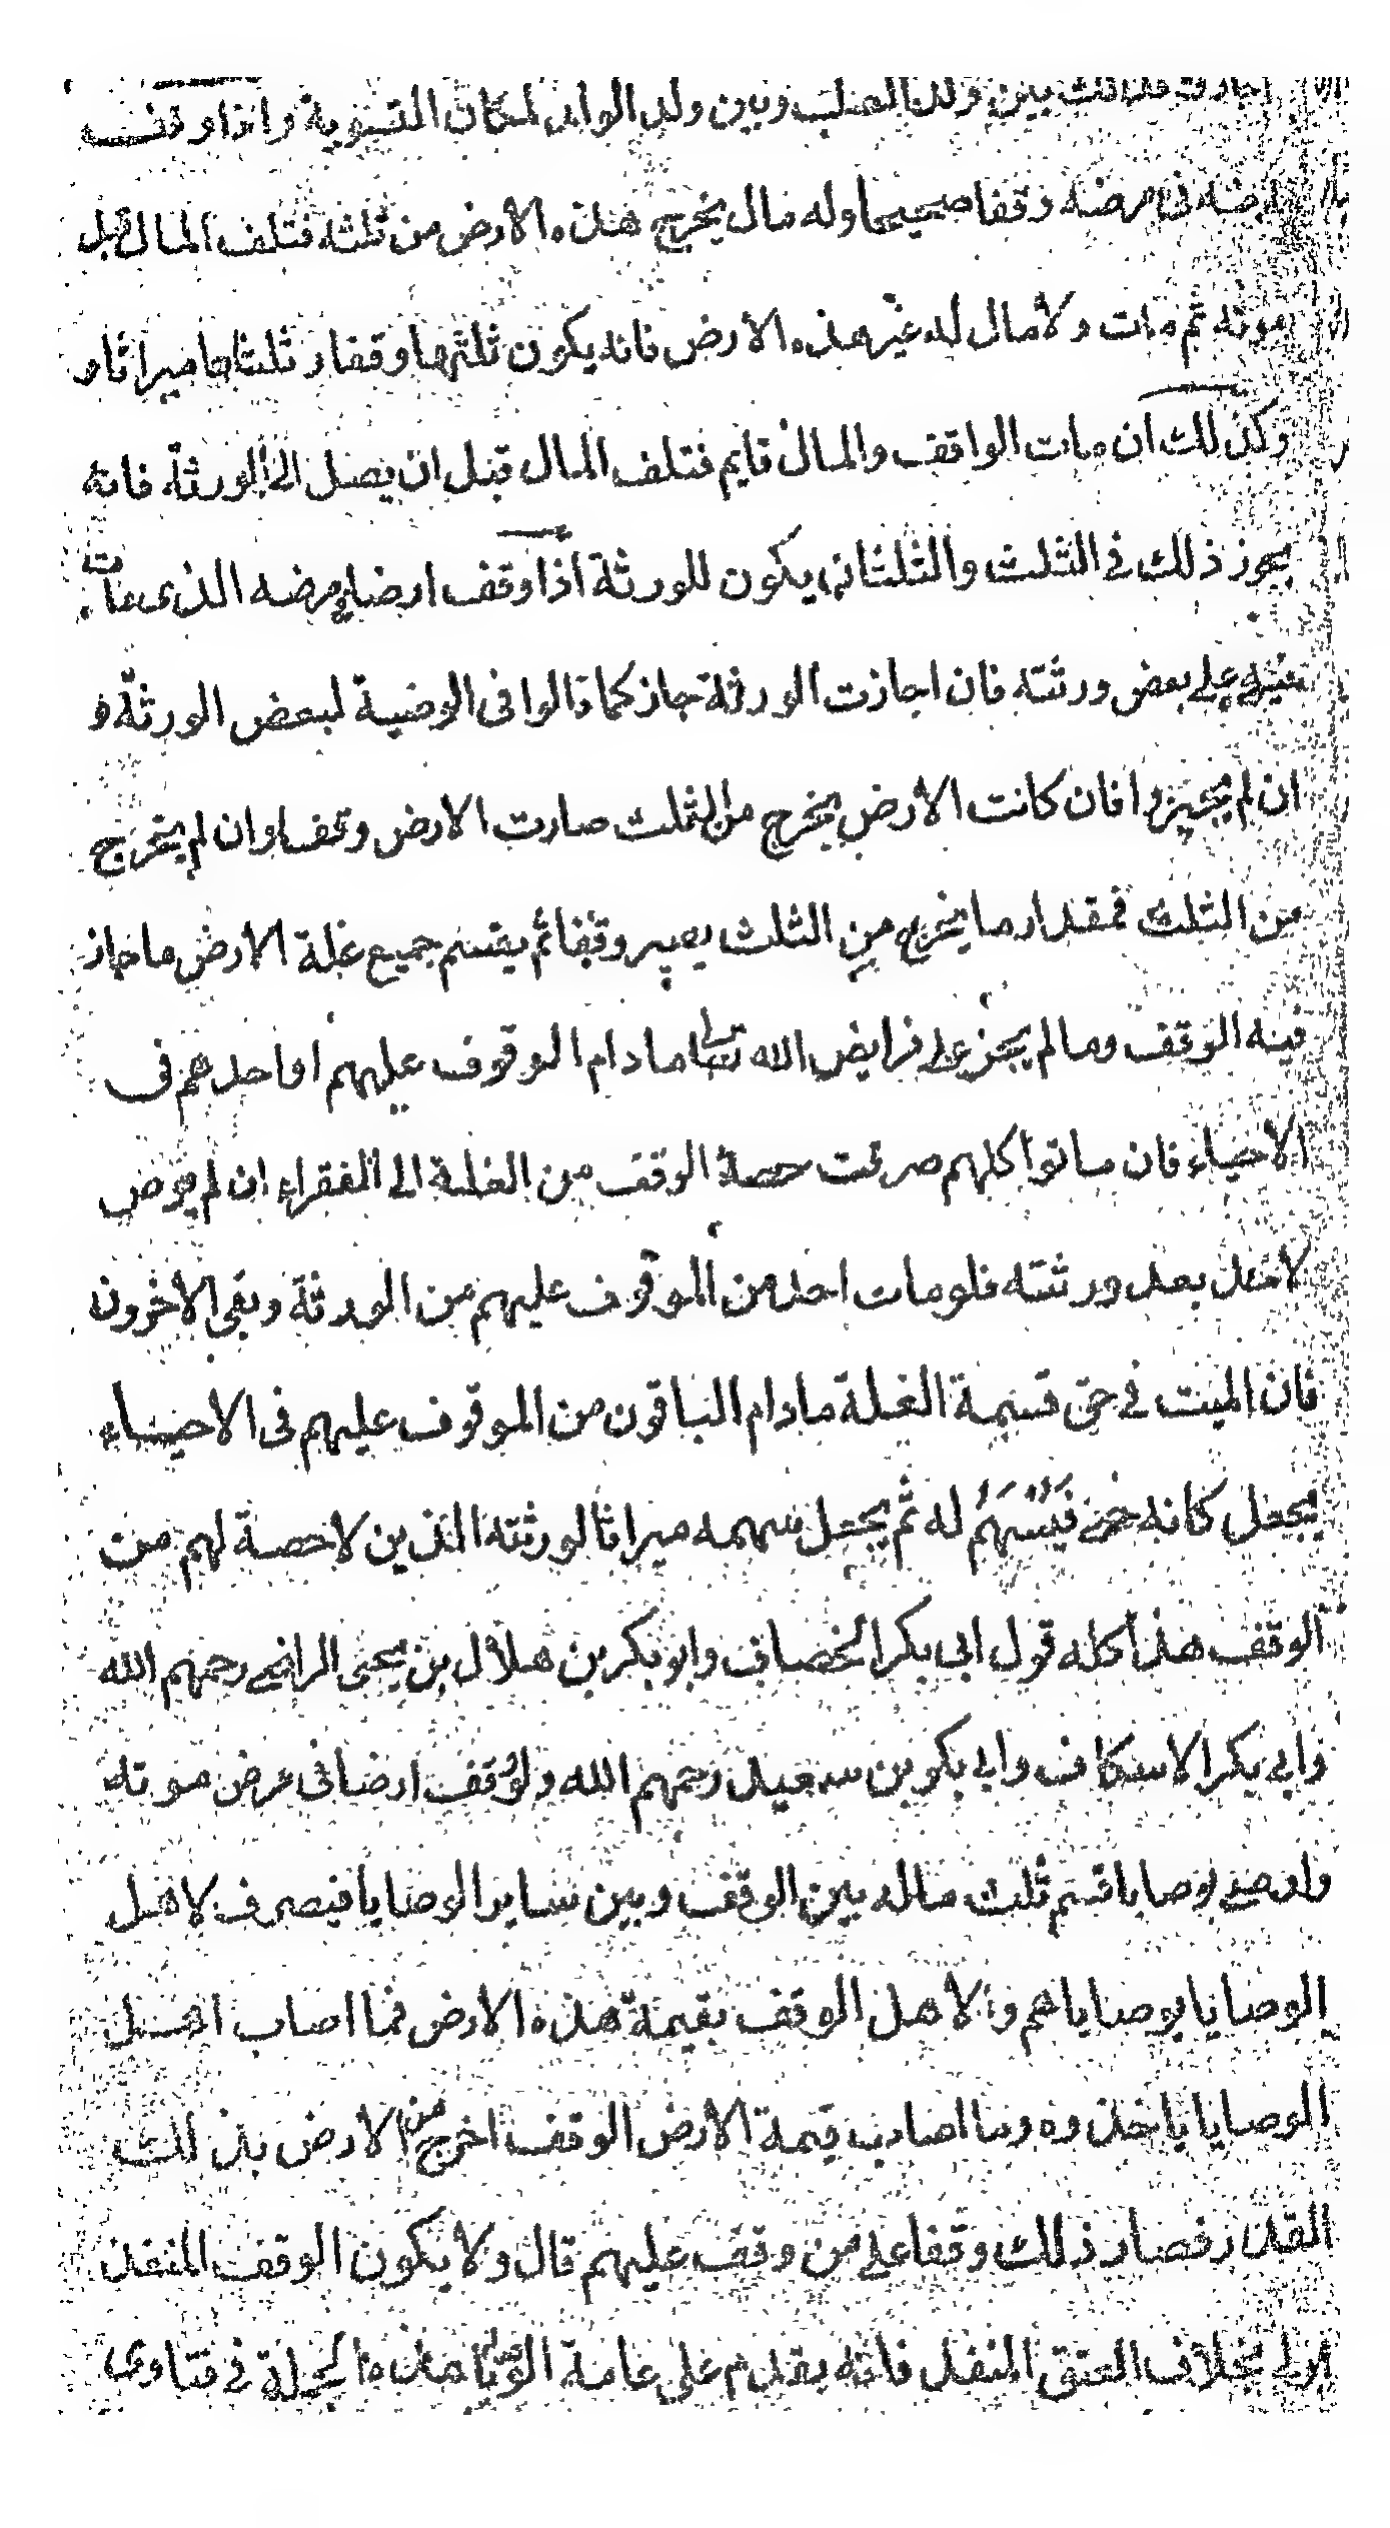 بين ولد الصلب وبين ولد الولد لمكان التسوية واذا وقف
ارضه فى مرضه وقفا صحيحا وله مال يخرج هذه الارض من ثلثه فتلف المال قبل
موته ثم مات ولا مال له غير هذه الارض فانه يكون ثلثها وقفا وثلثاها ميراثا و
وكذلك ان مات الواقف والمال قايم فتلف المال قبل ان يصل الى الورثة فانه
يجوز ذلك فى الثلث والثلثان يكون للورثة اذا وقف ارضا فى مرضه الذى مات
على بعض ورثته فان اجازت الورثة جاز كما قالوا فى الوصية لبعض الورثة و
ان لم يجيزوا فان كانت الارض يخرج من الثلث صارت الارض وقفا وان لم يخرج
من الثلث فمقدار ما يخرج من الثلث يصير وقفا ثم يقسم جميع غلة الارض ما جاز
فيه الوقف وما لم يجز على فرايض الله تعالى ما دام الموقوف عليهم او احدهم فى
الاحياء فان ماتوا كلهم صرفت حصة الوقف من الغلة الى الفقراء ان لم يوص
لاحد بعد ورثته فلو مات احد من الموقوف عليهم من الورثة وبقى الاخرون
فان الميت فى حق قسمة الغلة ما دام الباقون من الموقوف عليهم فى الاحياء
يجعل كانه حى فيسهم له ثم يجعل سهمه ميراثا لورثته الذين لا حصة لهم من
الوقف هذا كله قول ابى بكر الخصاف وابو بكر بن هلال بن يحيى الراى رحمهم الله
وابى بكر الاسكاف وابى بكر بن سعيد رحمهم الله ولو وقف ارضا فى مرض موته
واوصى بوصايا قسم ثلث ماله بين الوقف وبين ساير الوصايا فيصرف لاهل
الوصايا بوصاياهم ولاهل الوقف بقيمة هذه الارض فما اصاب اهل
الوصايا ياخذوه وما اصاب قيمة الارض الوقف اخرج من الارض بذلك
القدر فصار ذلك وقفا على من وقف عليهم قال ولا يكون الوقف المنفذ
اولى بخلاف العتق المنفذ فانه يقدم على عامة الوصايا هذه الجملة فى فتاوى